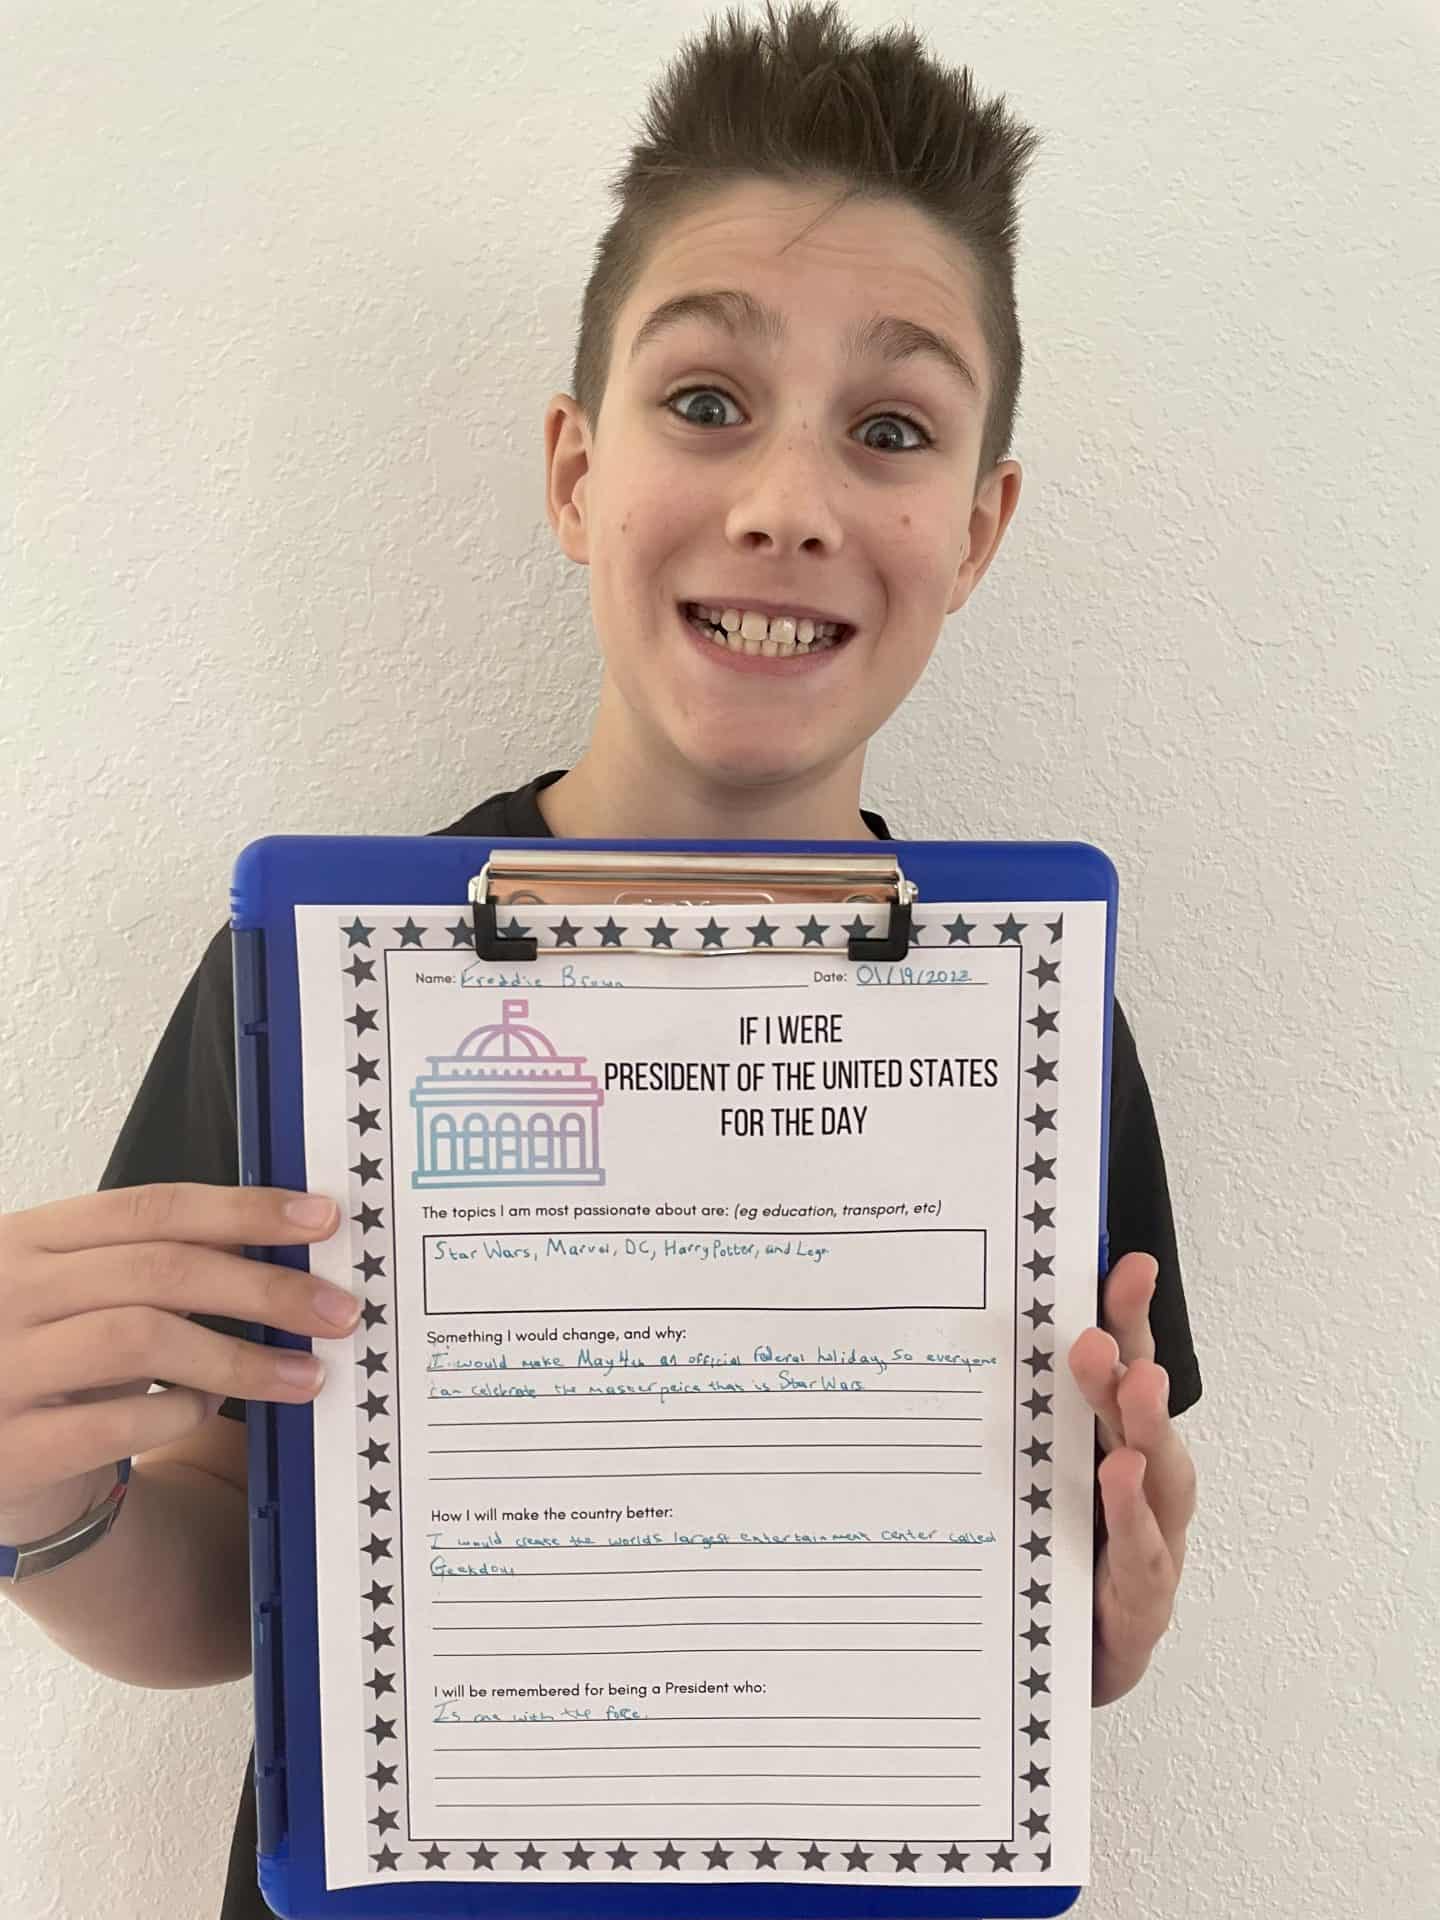 Name: Freddie Brown Date: 01/19/2022
IF I WERE
PRESIDENT OF THE UNITED STATES
FOR THE DAY
The topics I am most passionate about are: (eg education, transport, etc)
Star Wars, Marvel, DC, Harry Potter, and Lego
Something I would change, and why:
I would make May 4th an official federal holiday, so everyone
can celebrate the masterpeice that is Star Wars
How I will make the country better:
I would create the worlds largest entertainment center called
Geekdom
I will be remembered for being a President who:
Is one with the force.